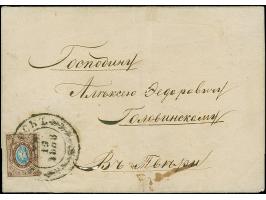 Господину
Алексею Федоровичу
Головинскому
Въ